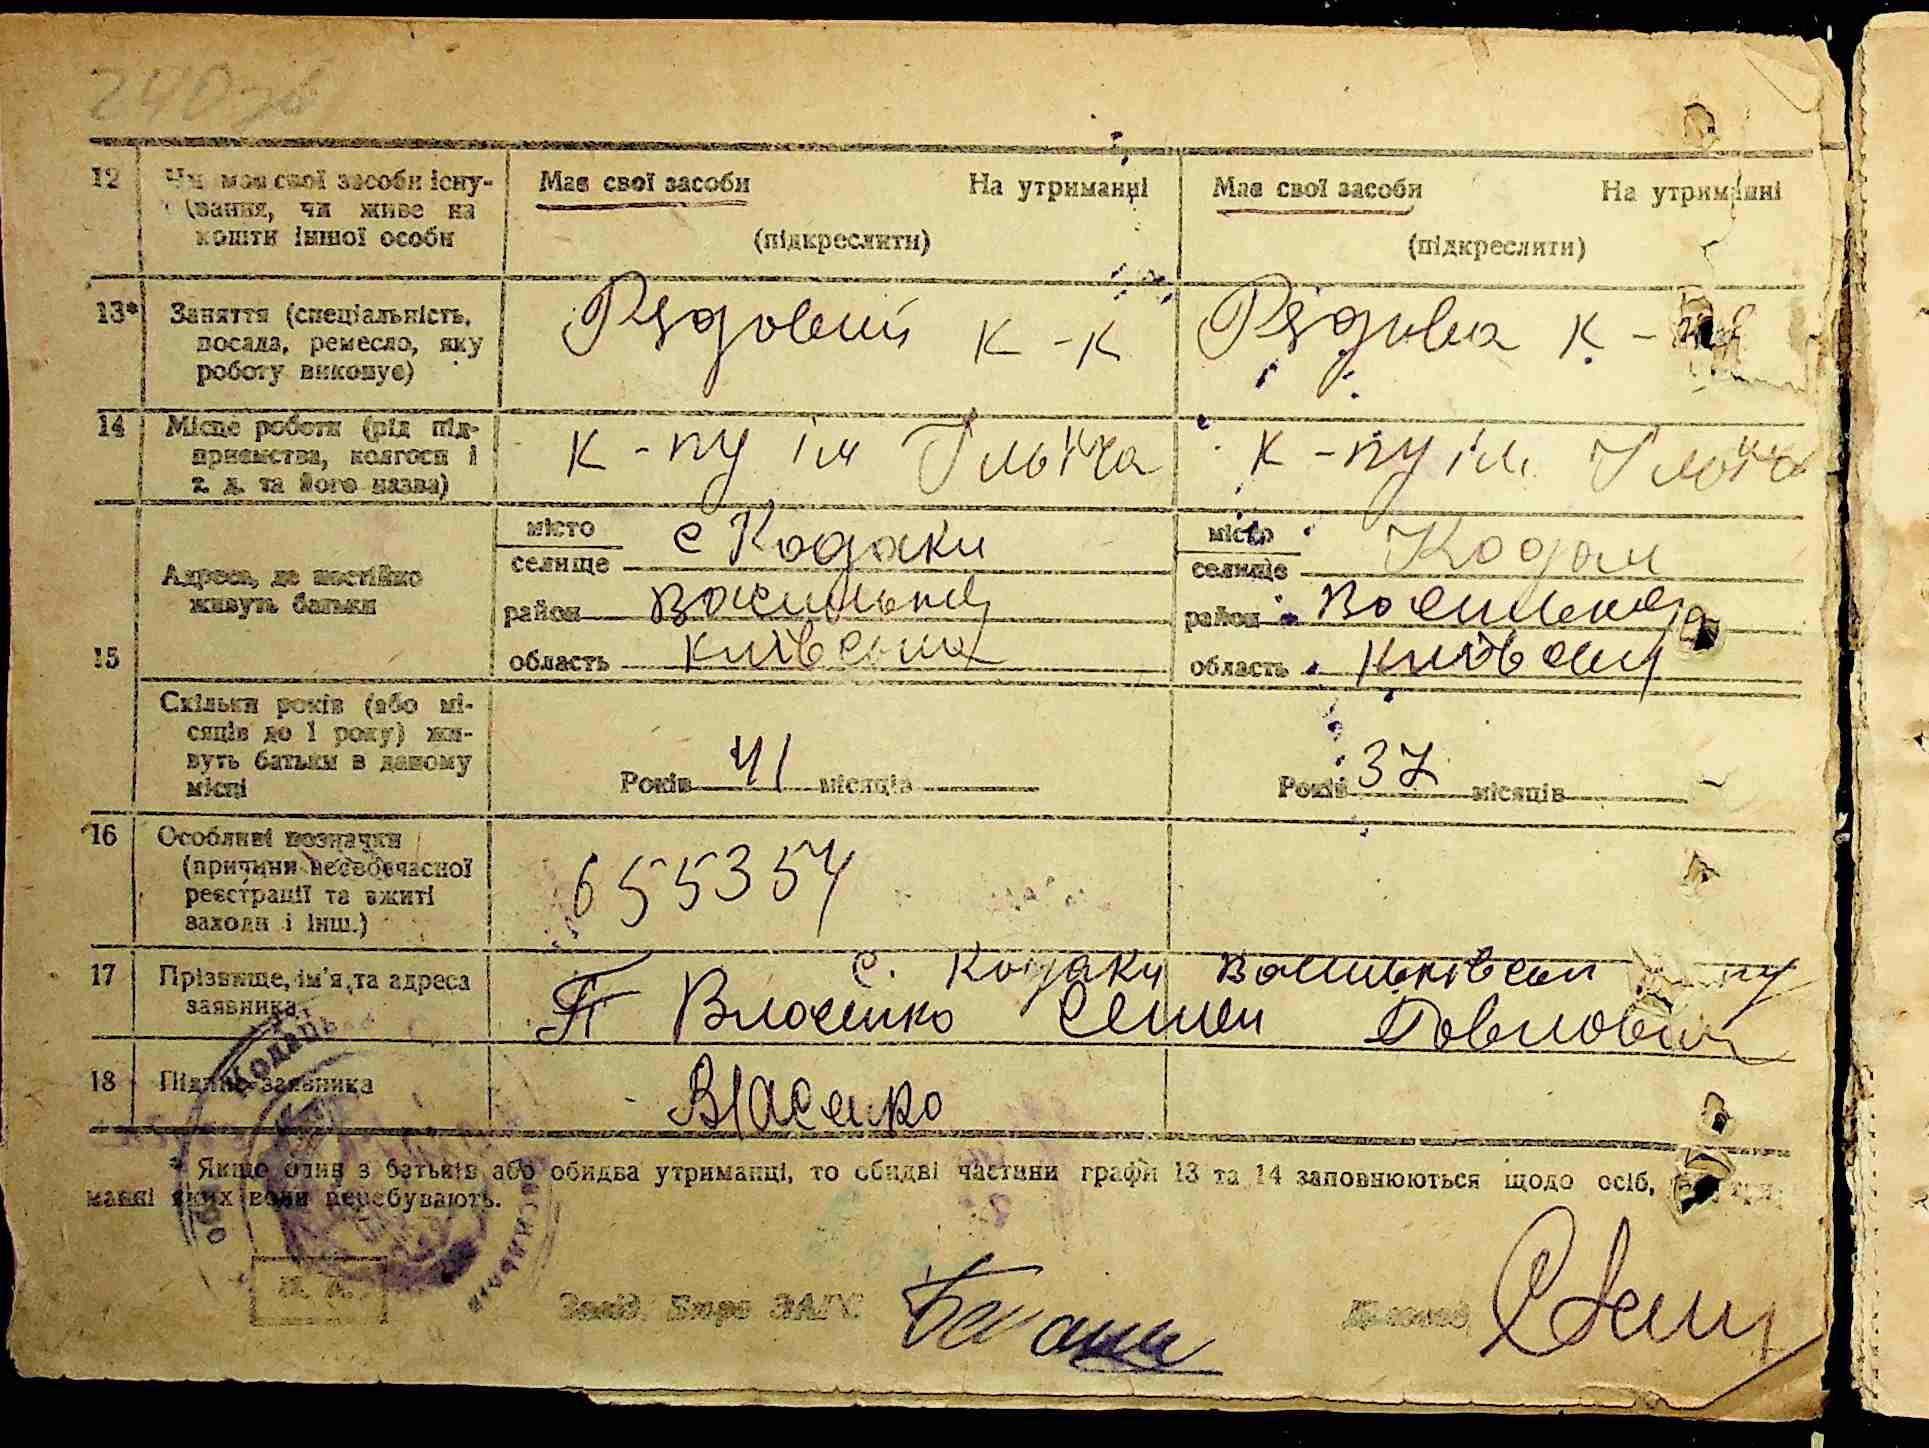 240зв
12 Чи має свої засоби існу- Має свої засоби На утриманні Має свої засоби На утриманні
вання, чи живе на
кошти іншої особи (підкреслити) (підкреслити)
13* Заняття (спеціальність, Рядовий к-к Рядова к-
посада, ремесло, яку
роботу виконує)
14 Місце роботи (рід під- к-пу ім Ілліча к-пу ім. Ілліча
приємства, колгосп і
т. д. та його назва)
15 Адреса, де постійно
живуть батьки
місто с Кодаки місто Кодаки
селище селище
район район
область область
Скільки років (або мі-
сяців до 1 року) жи-
вуть батьки в даному
місці
Років 41 місяців Років 37 місяців
16 Особливі позначки
(причини несвоєчасної
реєстрації та вжиті
заходи і інш.)
655354
17 Прізвище, ім'я та адреса с. Кодаки
заявника П Власенко Семен Павлович
18 Підпис заявника Власенко
* Якщо один з батьків або обидва утриманці, то обидві частини графи 13 та 14 заповнюються щодо осіб,
манні яких вони перебувають.
М. П.
Завід. Бюро ЗАГС Діловод